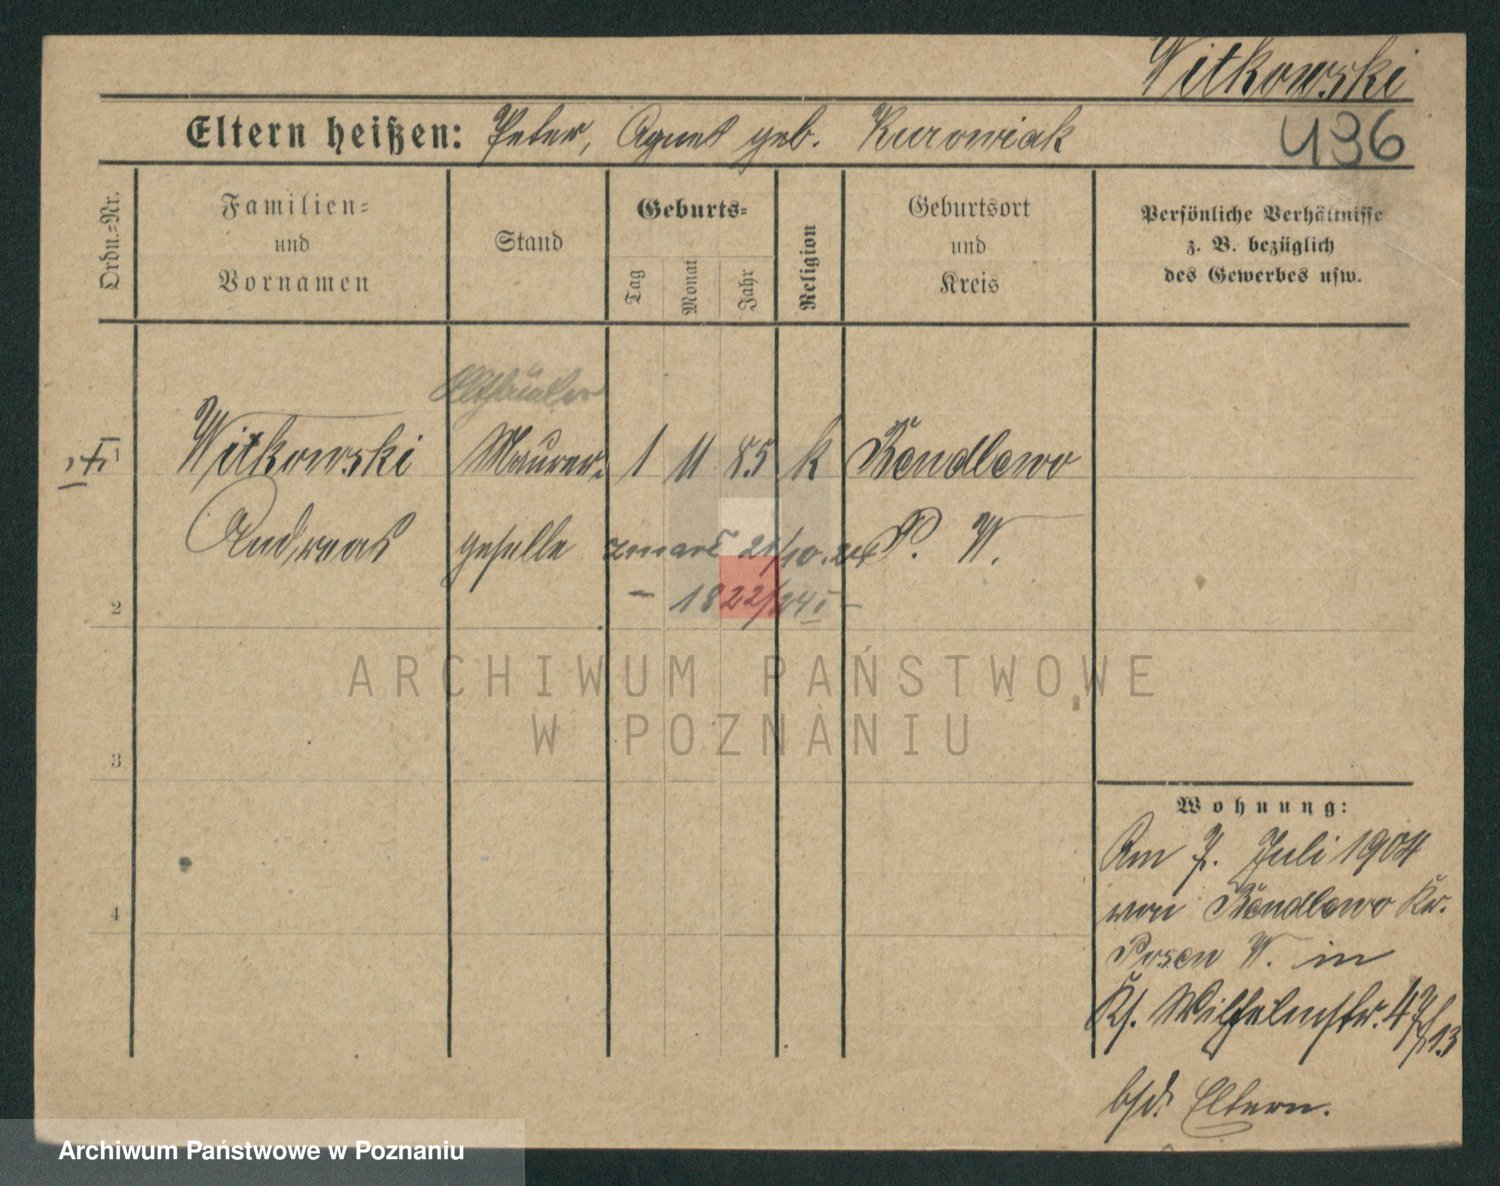 Witkowski
Eltern heißen: Peter, Agnes geb. Kurowiak
436
Ordn.=Nr.
Familien=
und
Vornamen
Stand
Geburts=
Tag
Monat
Jahr
Religion
Geburtsort
und
Kreis
Persönliche Verhältnisse
z. B. bezüglich
des Gewerbes usw.
1
Witkowski Maurer= 1 11 85 k Kondlewo
Andreas geselle P. W.
zmarł 21/10.
- 1822/24 I -
2
3
4
Wohnung:
Am 7. Juli 1904
von Kondlewo Kr.
Posen W. in
Kf. Wilhelmstr. 47
bsd. Eltern.
ARCHIWUM PAŃSTWOWE
W POZNANIU
Archiwum Państwowe w Poznaniu